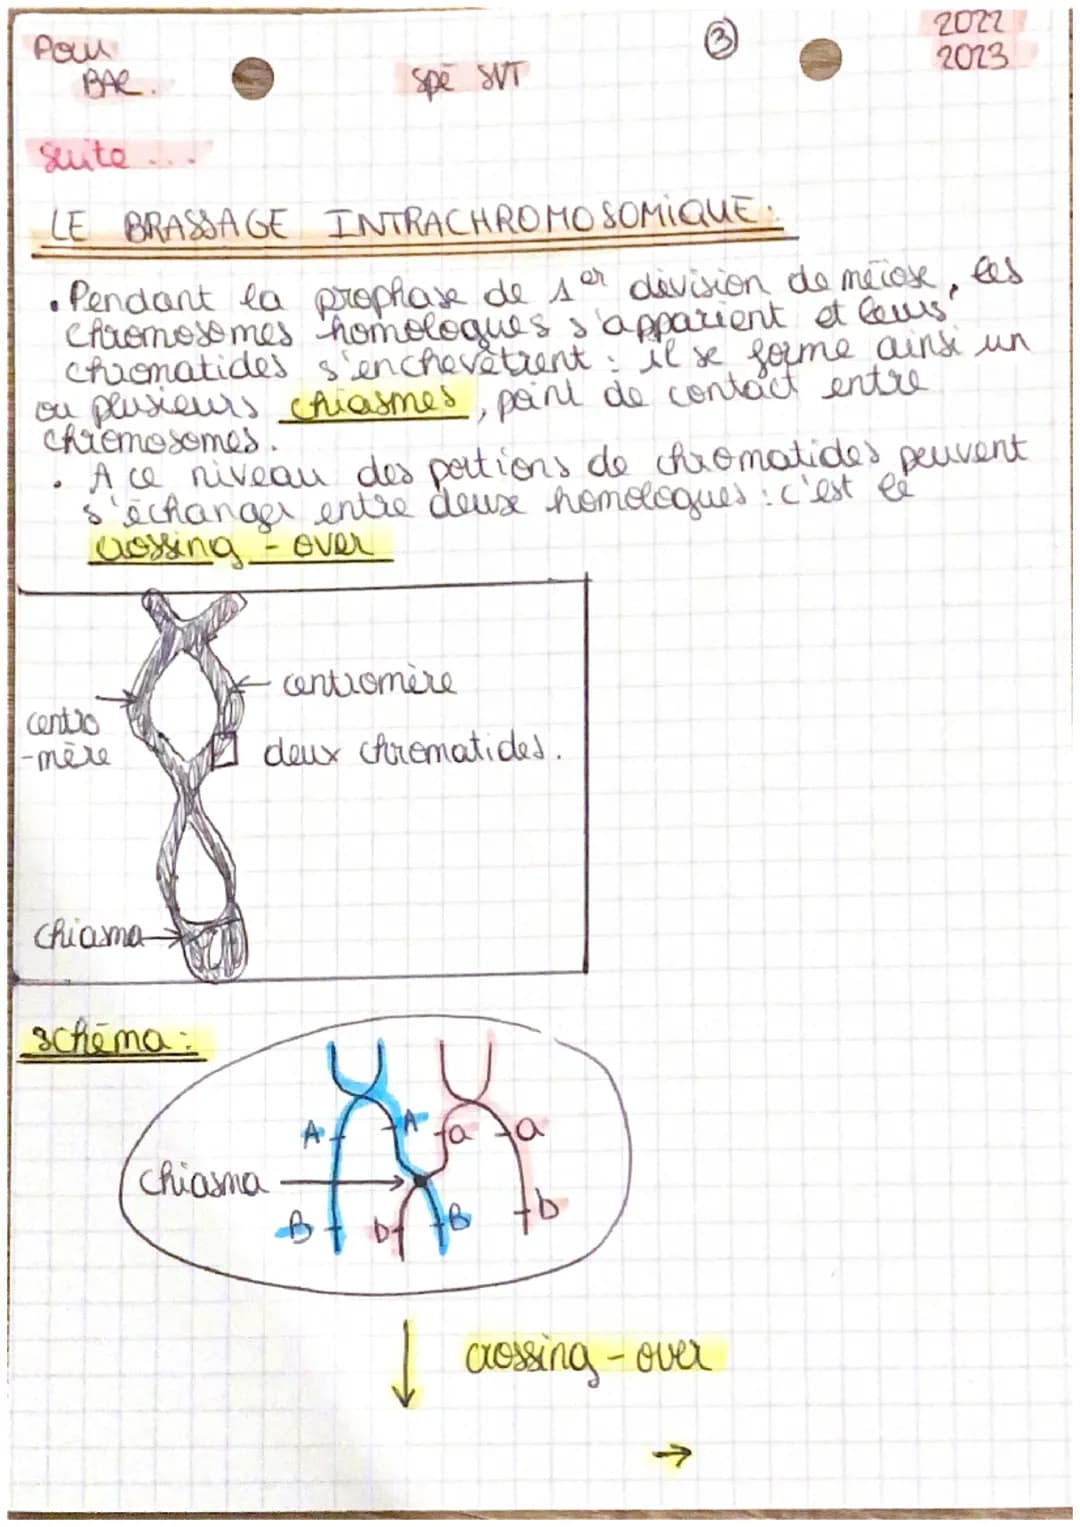 Pour
BAC.
Spé SVT
3
2022
2023
Suite ...
LE BRASSAGE INTRACHROMOSOMIQUE :
• Pendant la prophase de 1er division de méiose, les
chromosomes homologues s'apparient et leurs
chromatides s'enchevêtrent : il se forme ainsi un
ou plusieurs chiasmes, point de contact entre
chromosomes.
• A ce niveau des portions de chromatides peuvent
s'échanger entre deux homologues : c'est le
crossing-over
centromère
centro
-mère
deux chromatides.
chiasma
schéma :
A A a a
chiasma
B b B b
crossing-over
→